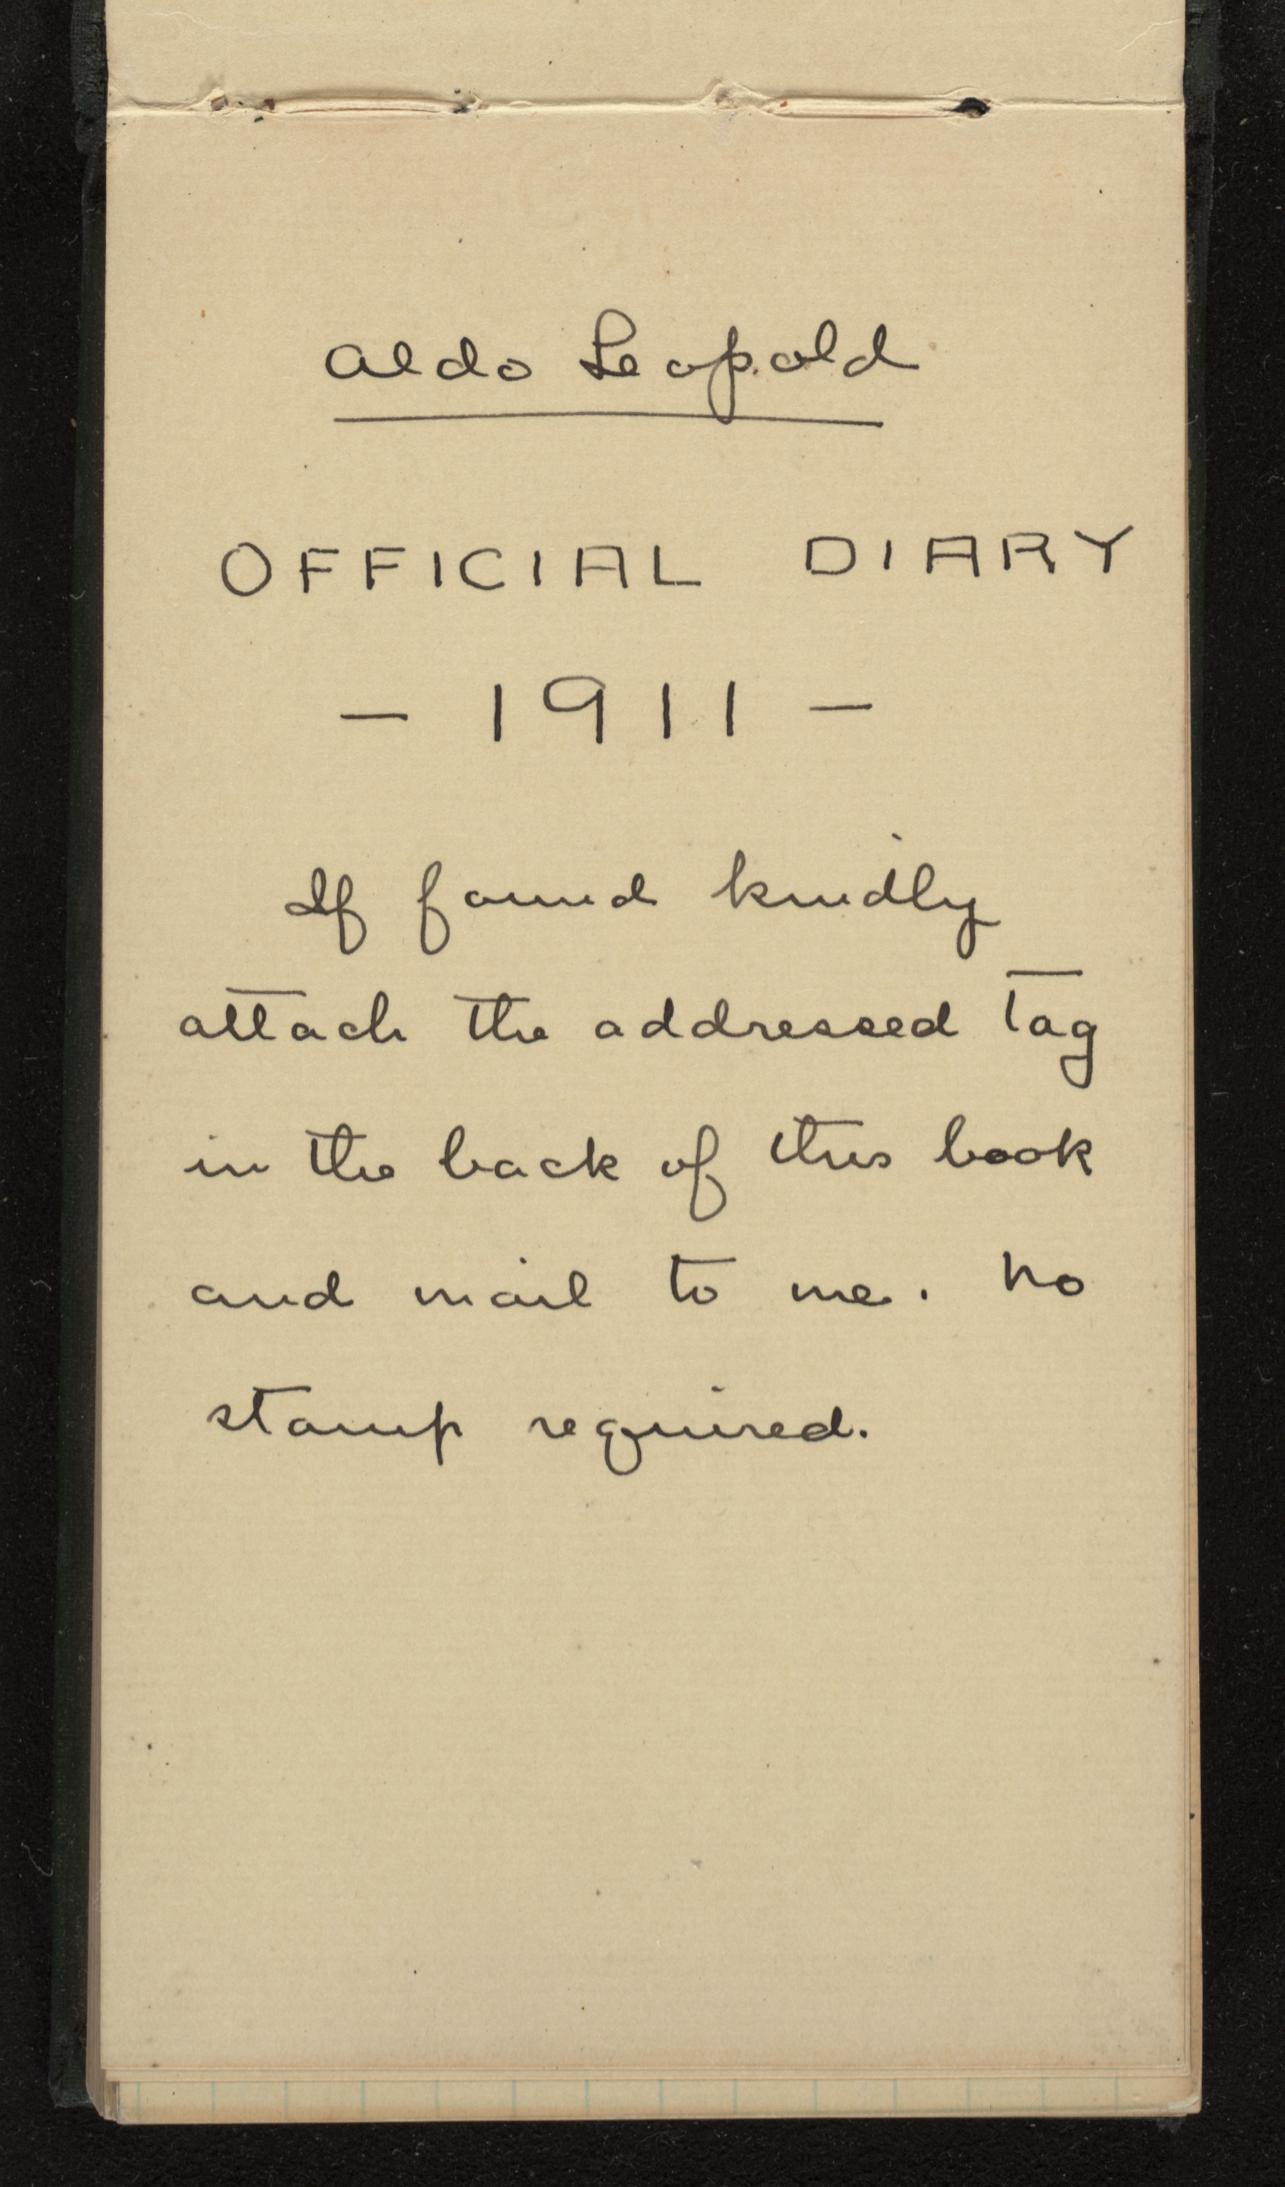 Aldo Leopold
OFFICIAL DIARY
- 1911 -
If found kindly
attach the addressed tag
in the back of this book
and mail to me. No
stamp required.